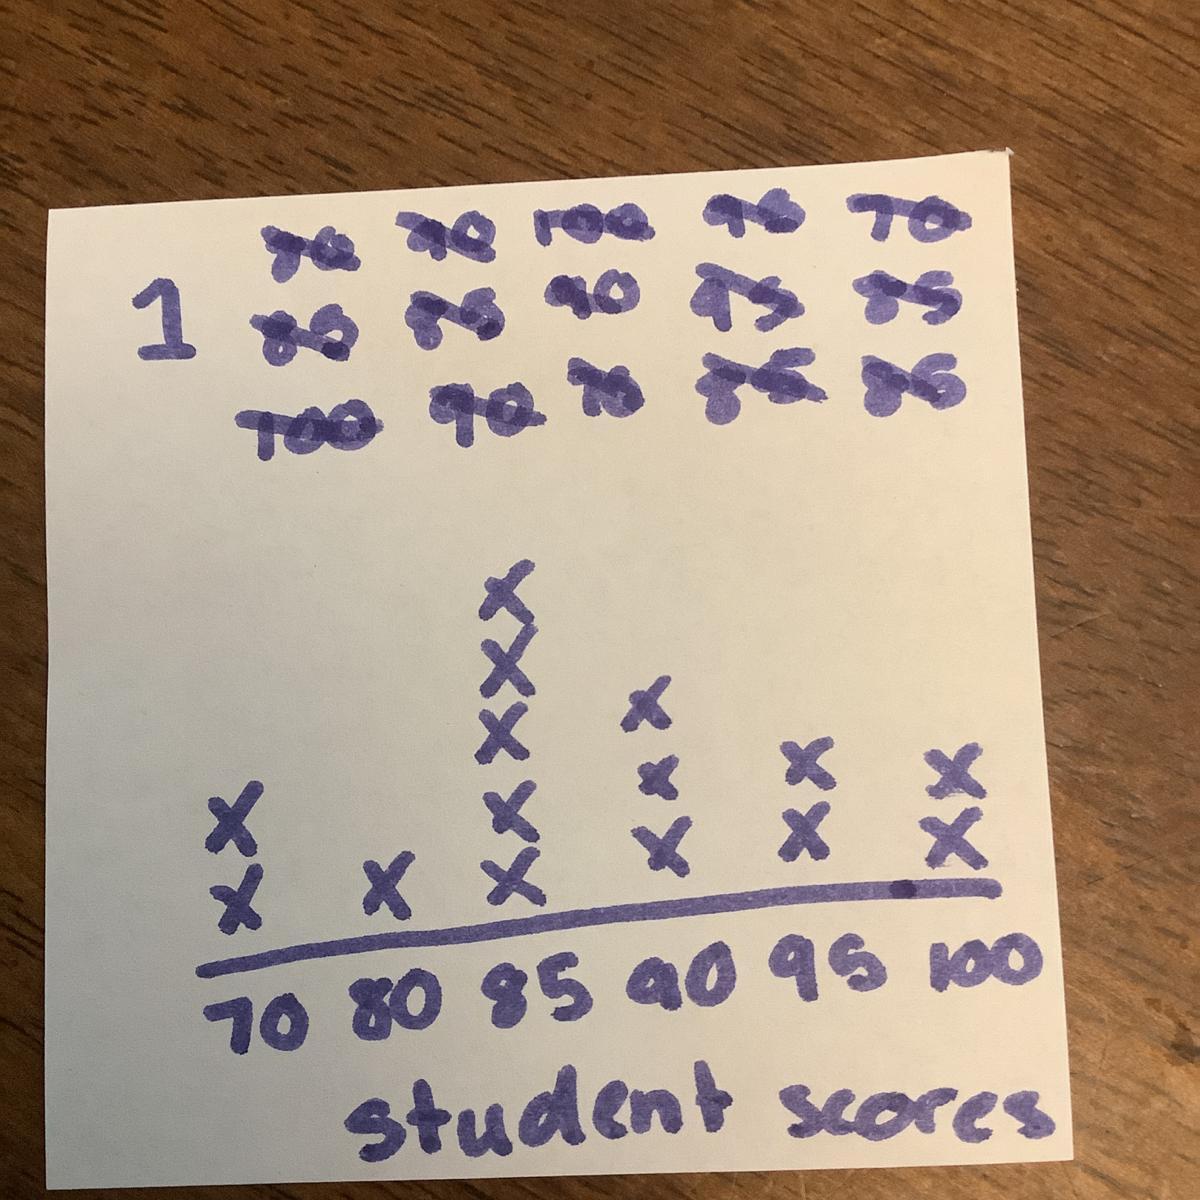 80 90 100 95 70
1 85 85 90 95 85
100 90 70 85 85
X
X
X X
X X X X X
X X X X X X
70 80 85 90 95 100
student scores